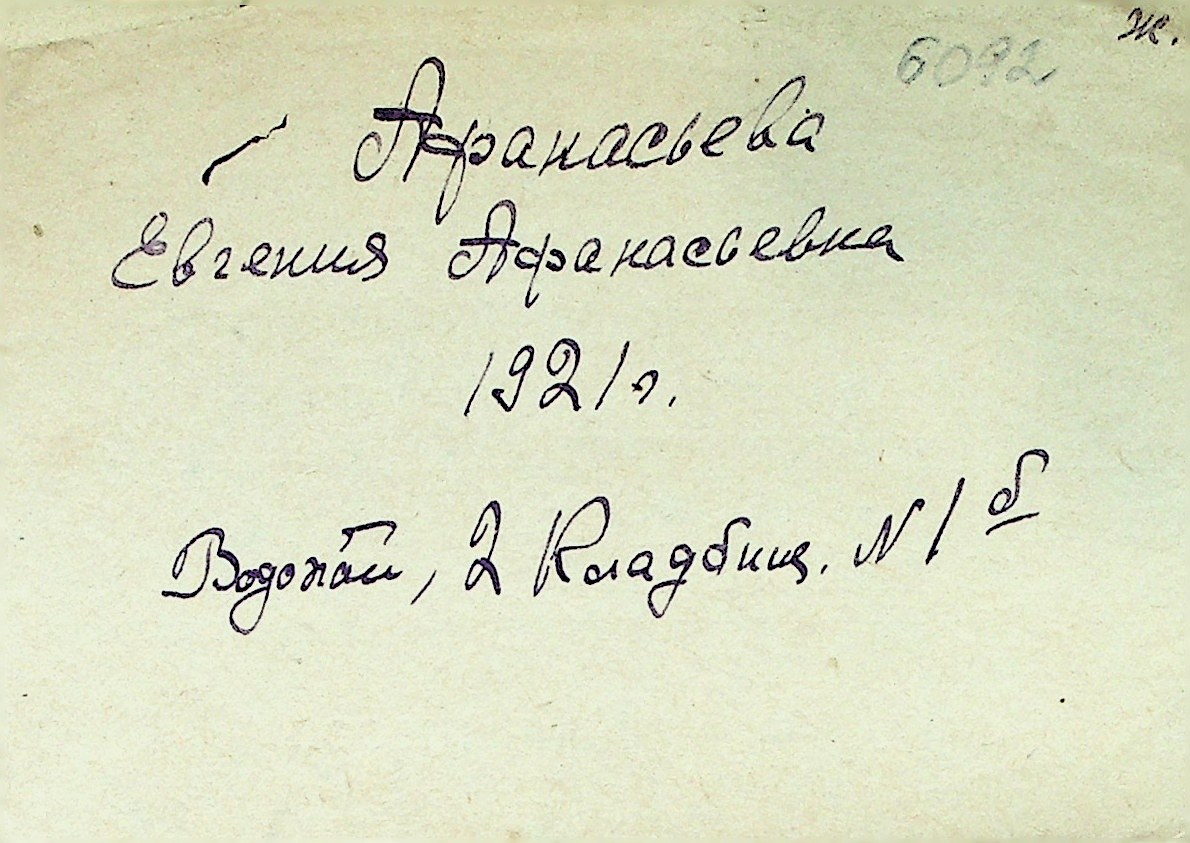 ж.
6092
Афанасьева
Евгения Афанасьевна
1921 г.
Водопой, 2 Кладбищ. N 1 б